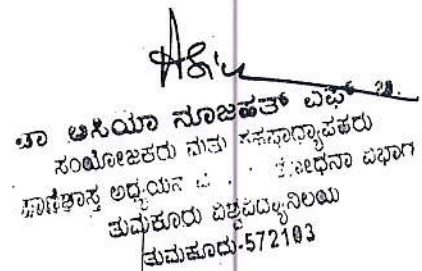 ಡಾ ಆಸಿಯಾ ನೂಜಹತ್ ಎಫ್
ಸಂಯೋಜಕರು ಮತ್ತು ಸಹಪ್ರಾಧ್ಯಾಪಕರು
ಪ್ರಾಣಿಶಾಸ್ತ್ರ ಅಧ್ಯಯನ ವಿಭಾಗ
ತುಮಕೂರು ವಿಶ್ವವಿದ್ಯಾನಿಲಯ
ತುಮಕೂರು-572103